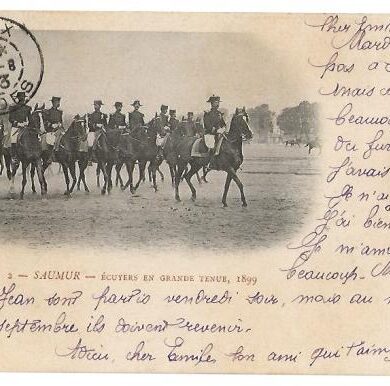 cher Emile
Mardi
pas a
mais
beaucoup
du
J'avais
Je n'ai
J'ai bien
Je m'am
beaucoup.
2 - SAUMUR - ÉCUYERS EN GRANDE TENUE, 1899
Jean sont partis vendredi soir, mais au
septembre ils doivent revenir.
Adieu, cher Emile ton ami qui t'aim